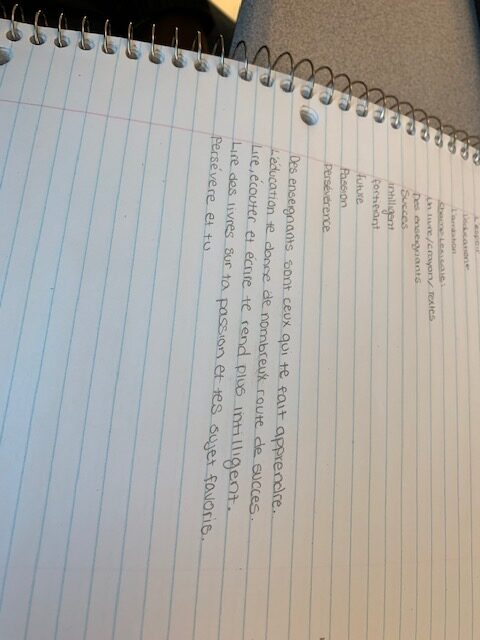 L'espoir
L'éducation
L'ambition
Champ Lexicale:
Un livre/crayon/textes
Des enseignants
Succes
Intilligent
Portienant
future
Passion
Persévérence
Des enseignants sont ceux qui te fait apprendre.
L'éducation te donne de nombreux route de succes.
Lire, écouter et écrire te rend plus intilligent.
Lire des livres sur ta passion et tes sujet favoris.
Persévere et tu